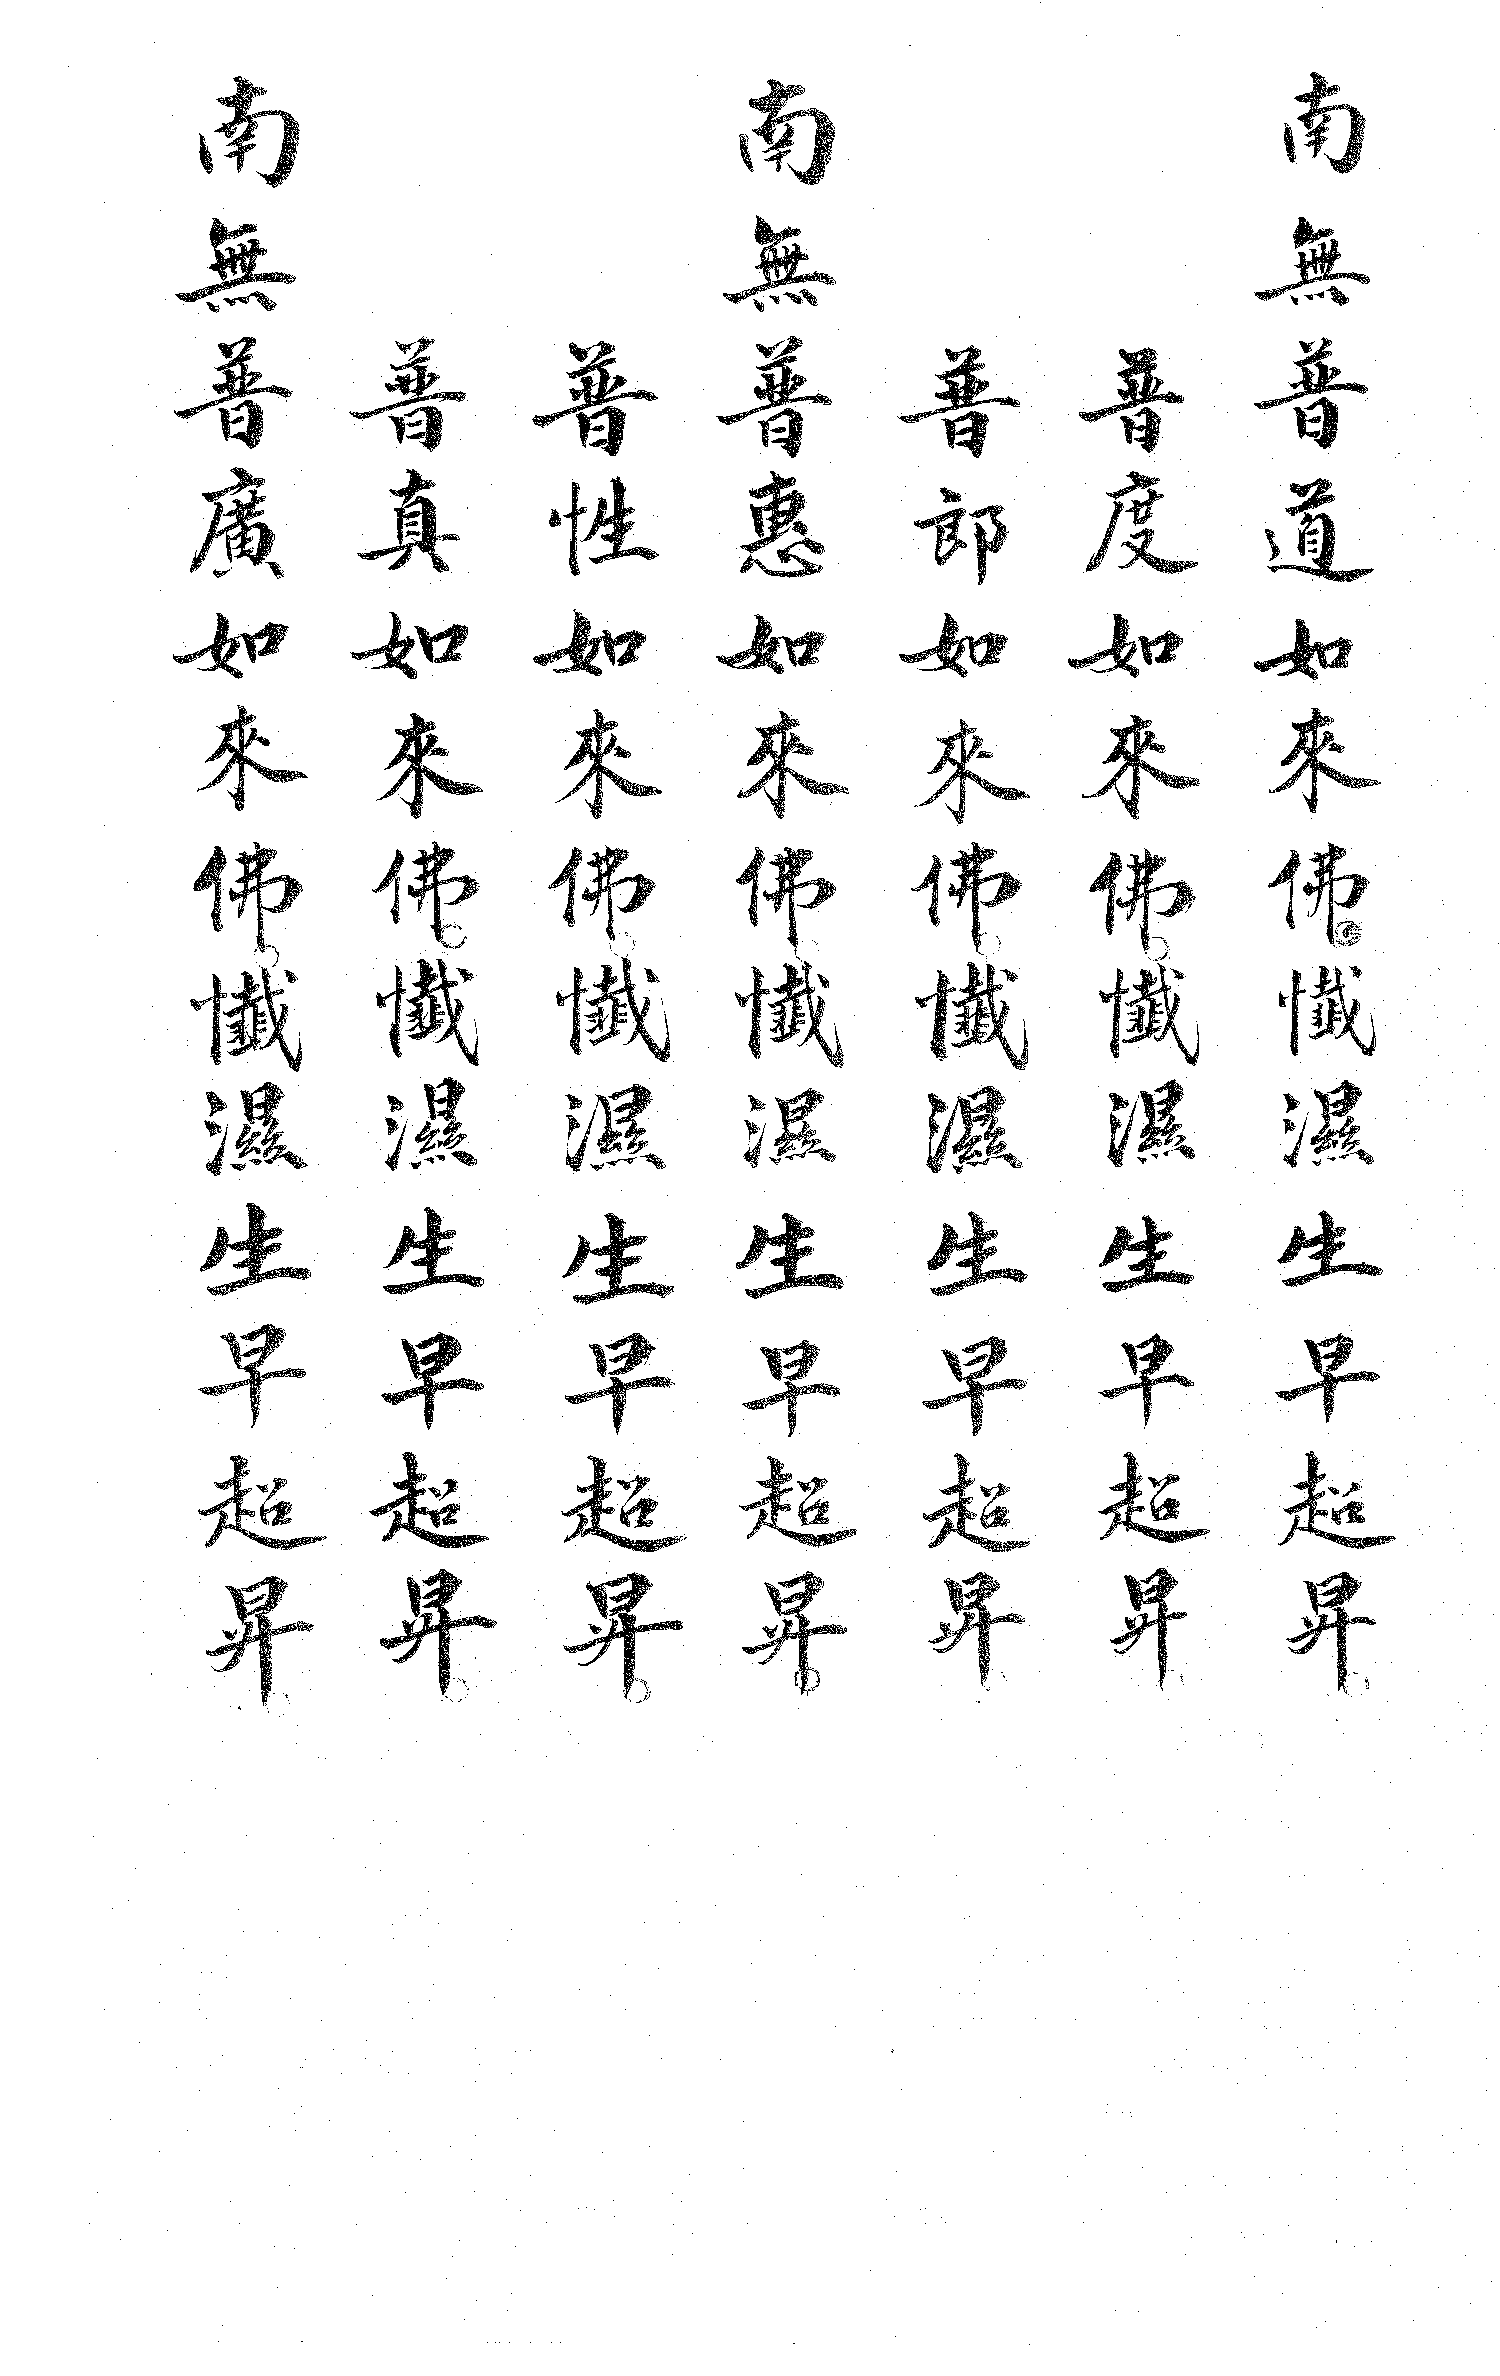 南無普道如來佛。懺濕生早超昇。
普度如來佛。懺濕生早超昇。
普郎如來佛。懺濕生早超昇。
南無普惠如來佛。懺濕生早超昇。
普性如來佛。懺濕生早超昇。
普真如來佛。懺濕生早超昇。
南無普廣如來佛。懺濕生早超昇。